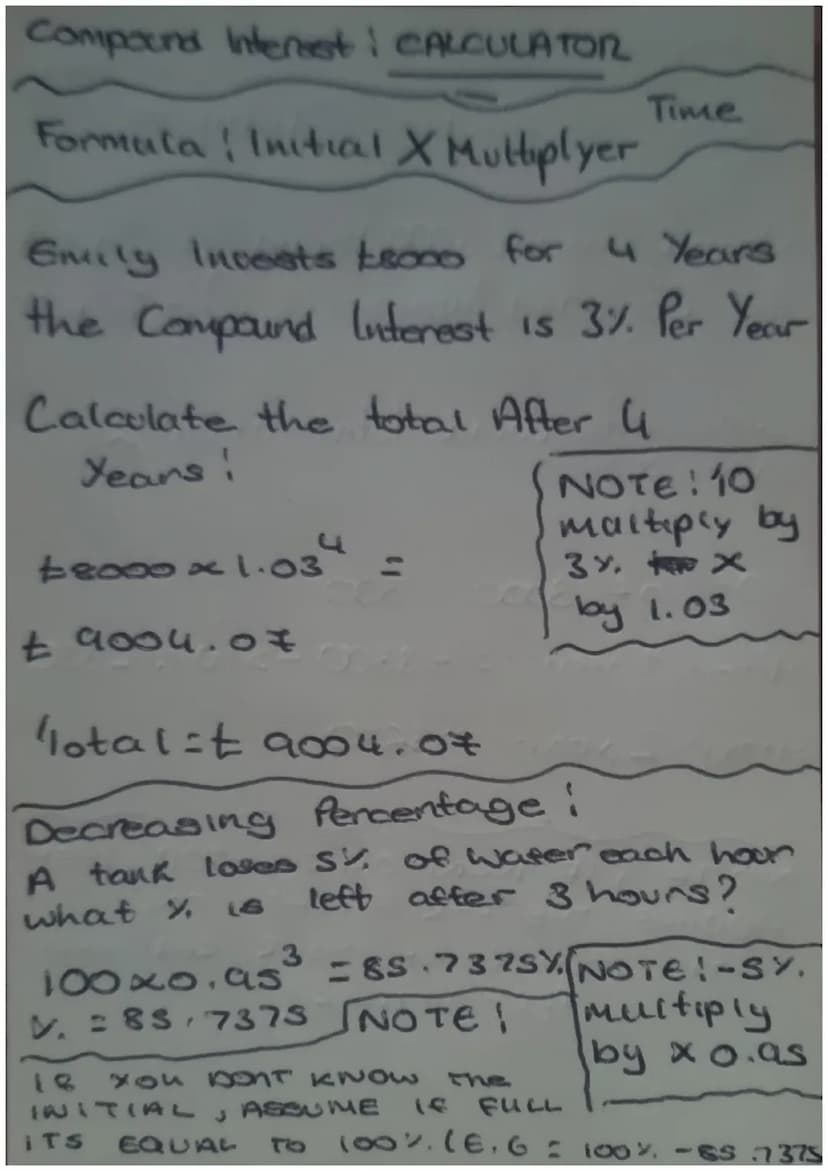 Compound Interest : CALCULATOR
Time
Formula : Initial X Multiplyer
Emily Invests £8000 for 4 Years
the Compound Interest is 3% Per Year
Calculate the total After 4
Years :
NOTE : TO
multiply by
3% x
by 1.03
£8000 x 1.03⁴ =
£ 9004.07
Total = £ 9004.07
Decreasing Percentage :
A tank loses 5% of water each hour
what % is left after 3 hours?
100 x 0.95³ = 85.7375%
NOTE : -5%
multiply
by x 0.95
% = 85.7375
NOTE :
IF YOU DONT KNOW THE
INITIAL, ASSUME IF FULL
ITS EQUAL TO 100%. (E.G = 100% - 85.7375